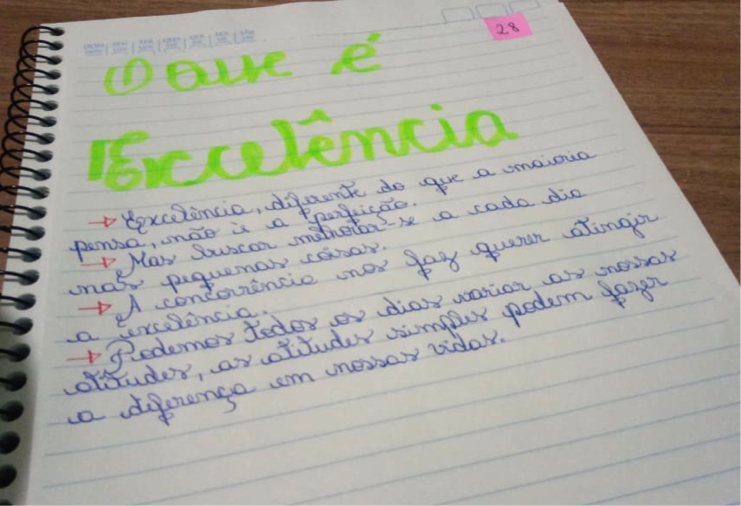 28
O que é
Excelência
→ Excelência, diferente do que a maioria
pensa, não é a perfeição.
→ Mas buscar melhorar-se a cada dia
nas pequenas coisas.
→ A concorrência nos faz querer atingir
a excelência.
→ Podemos todos os dias variar as nossas
atitudes, as atitudes simples podem fazer
a diferença em nossas vidas.